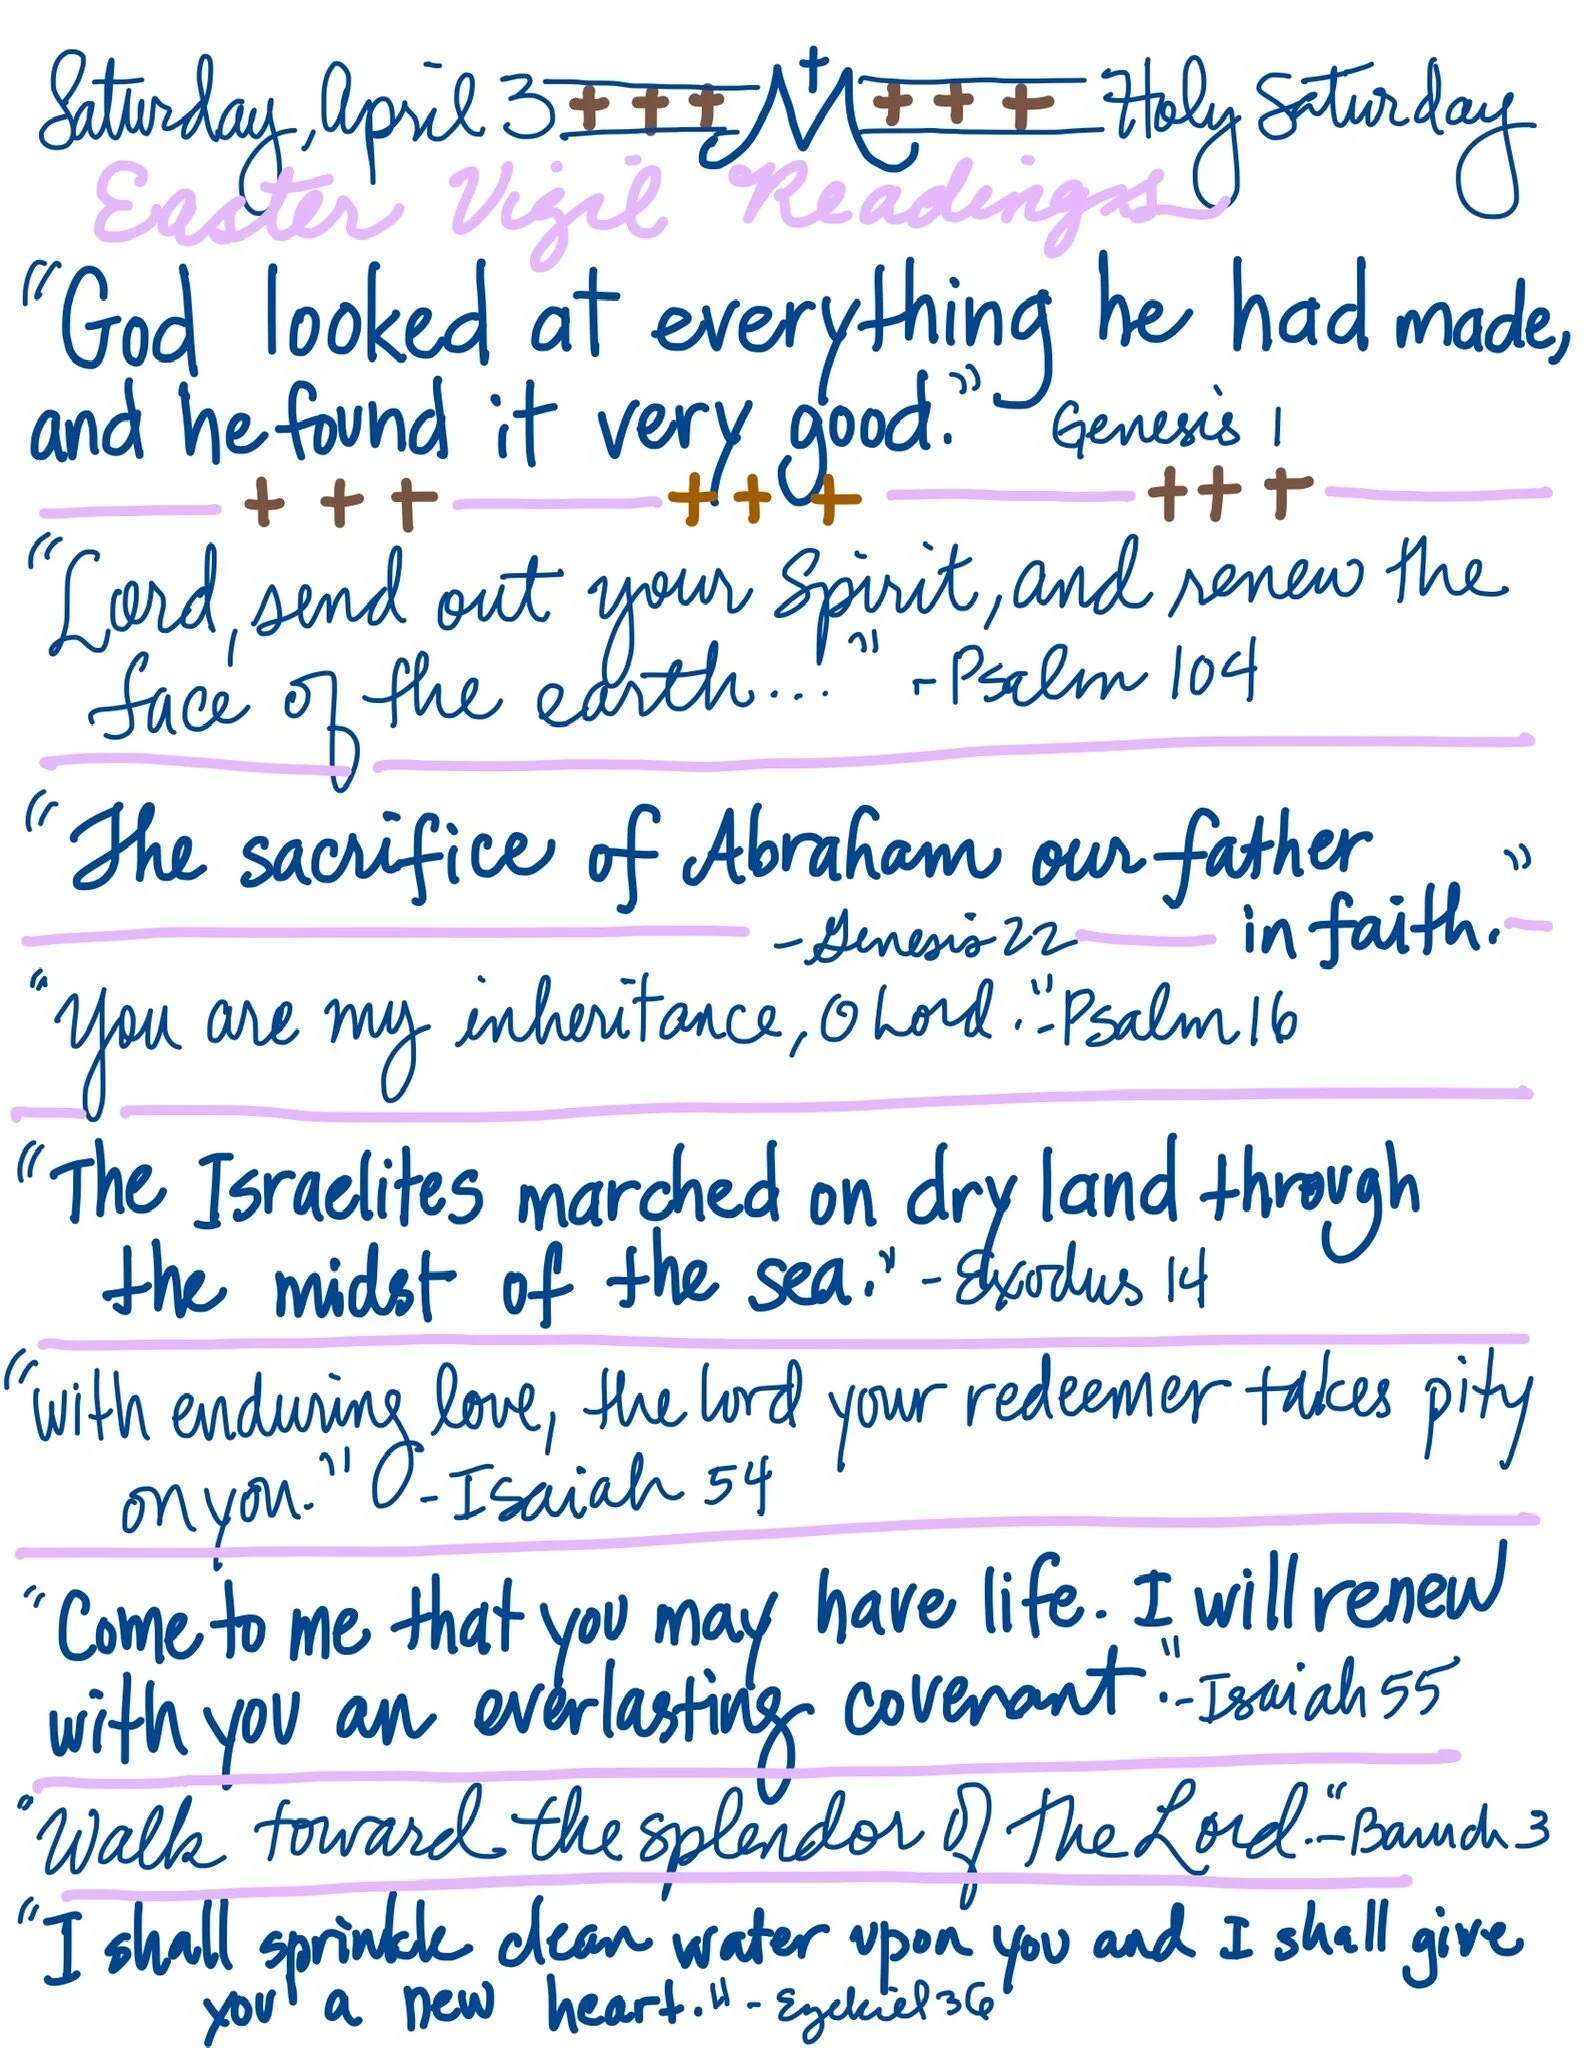 Saturday, April 3 M Holy Saturday
Easter Vigil Readings
"God looked at everything he had made,
and he found it very good." Genesis 1
"Lord, send out your Spirit, and renew the
face of the earth..." -Psalm 104
"The sacrifice of Abraham our father
in faith."
-Genesis 22
"You are my inheritance, O Lord." -Psalm 16
"The Israelites marched on dry land through
the midst of the sea." -Exodus 14
"with enduring love, the lord your redeemer takes pity
on you." -Isaiah 54
"Come to me that you may have life. I will renew
with you an everlasting covenant." -Isaiah 55
"Walk toward the splendor of the Lord." -Baruch 3
"I shall sprinkle clean water upon you and I shall give
you a new heart." -Ezekiel 36